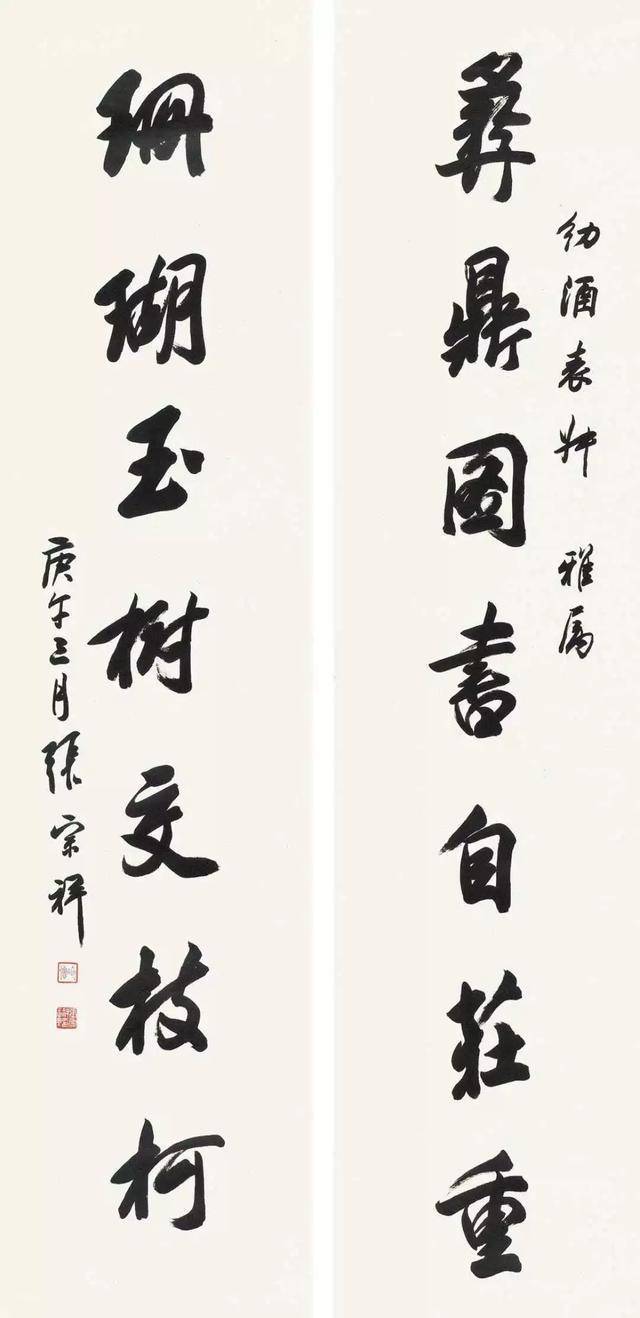 彝鼎图書自莊重
幼酒表叔 雅属
珊瑚玉樹交枝柯
庚午三月張宗祥